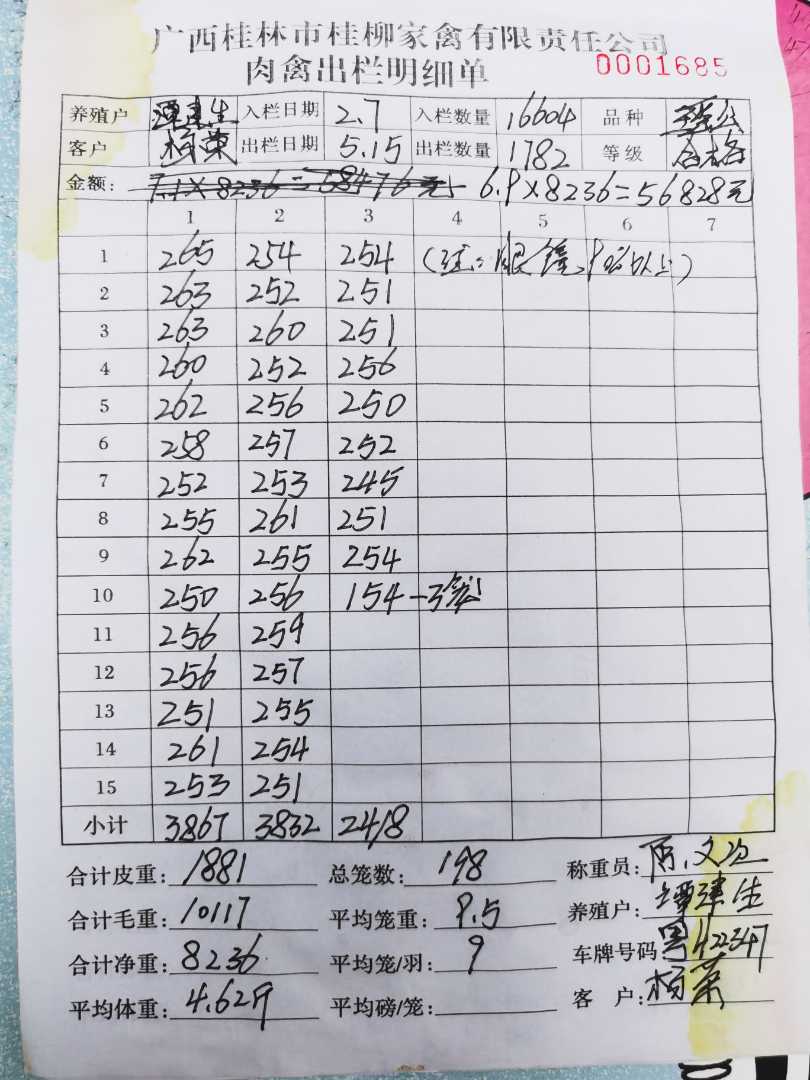 广西桂林市桂柳家禽有限责任公司
肉禽出栏明细单 0001685
养殖户 谭建生 入栏日期 2.7 入栏数量 16604 品种
客户 杨荣 出栏日期 5.15 出栏数量 1782 等级 合格
金额: 7.1×8236=58476元 6.9×8236=56828元
1 2 3 4 5 6 7
1 265 254 254
2 263 252 251
3 263 260 251
4 260 252 256
5 262 256 250
6 258 257 252
7 252 253 245
8 255 261 251
9 262 255 254
10 250 256 154
11 256 259
12 256 257
13 251 255
14 261 254
15 253 251
小计 3867 3832 2418
合计皮重: 1881 总笼数: 198 称重员:
合计毛重: 10117 平均笼重: 9.5 养殖户: 谭建生
合计净重: 8236 平均笼/羽: 9 车牌号码 粤
平均体重: 4.62斤 平均磅/笼: 客户: 杨荣